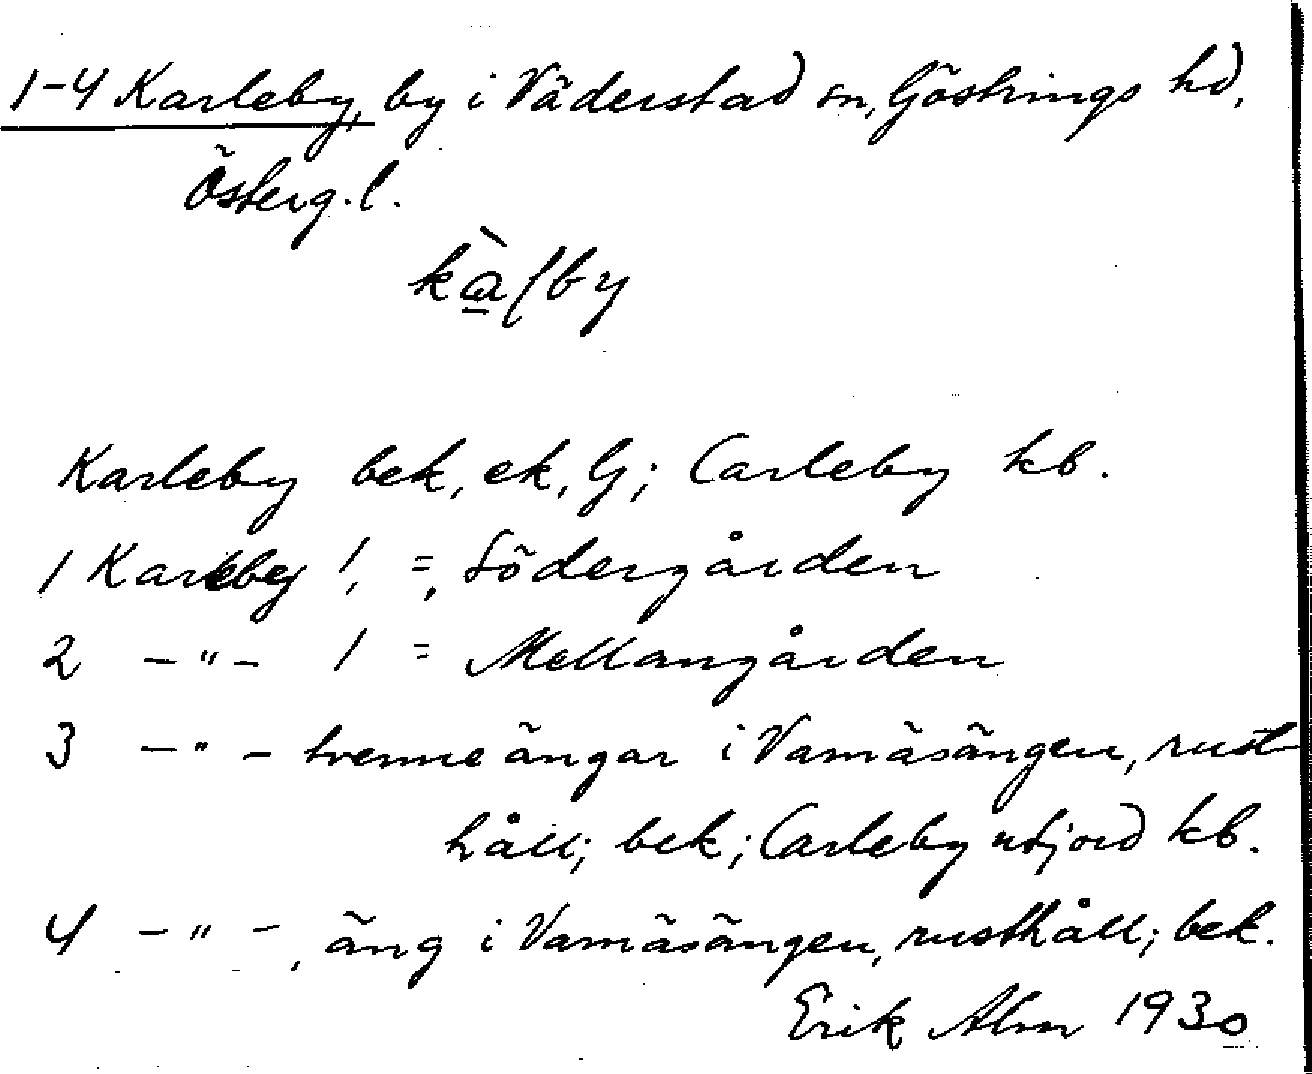 1-4 Karleby, by i Väderstad sn, Göstrings hd,
Österg.l.
Karleby bek, ek, G; Carleby kb.
1 Karleby 1, =, Södergården
2 -"- 1 = Mellangården
3 -"- tvenne ängar i Vamäsängen, rust
håll; bek; Carleby utjord kb.
4 -"-, äng i Vamäsängen, rusthåll; bek.
Erik Alm 1930